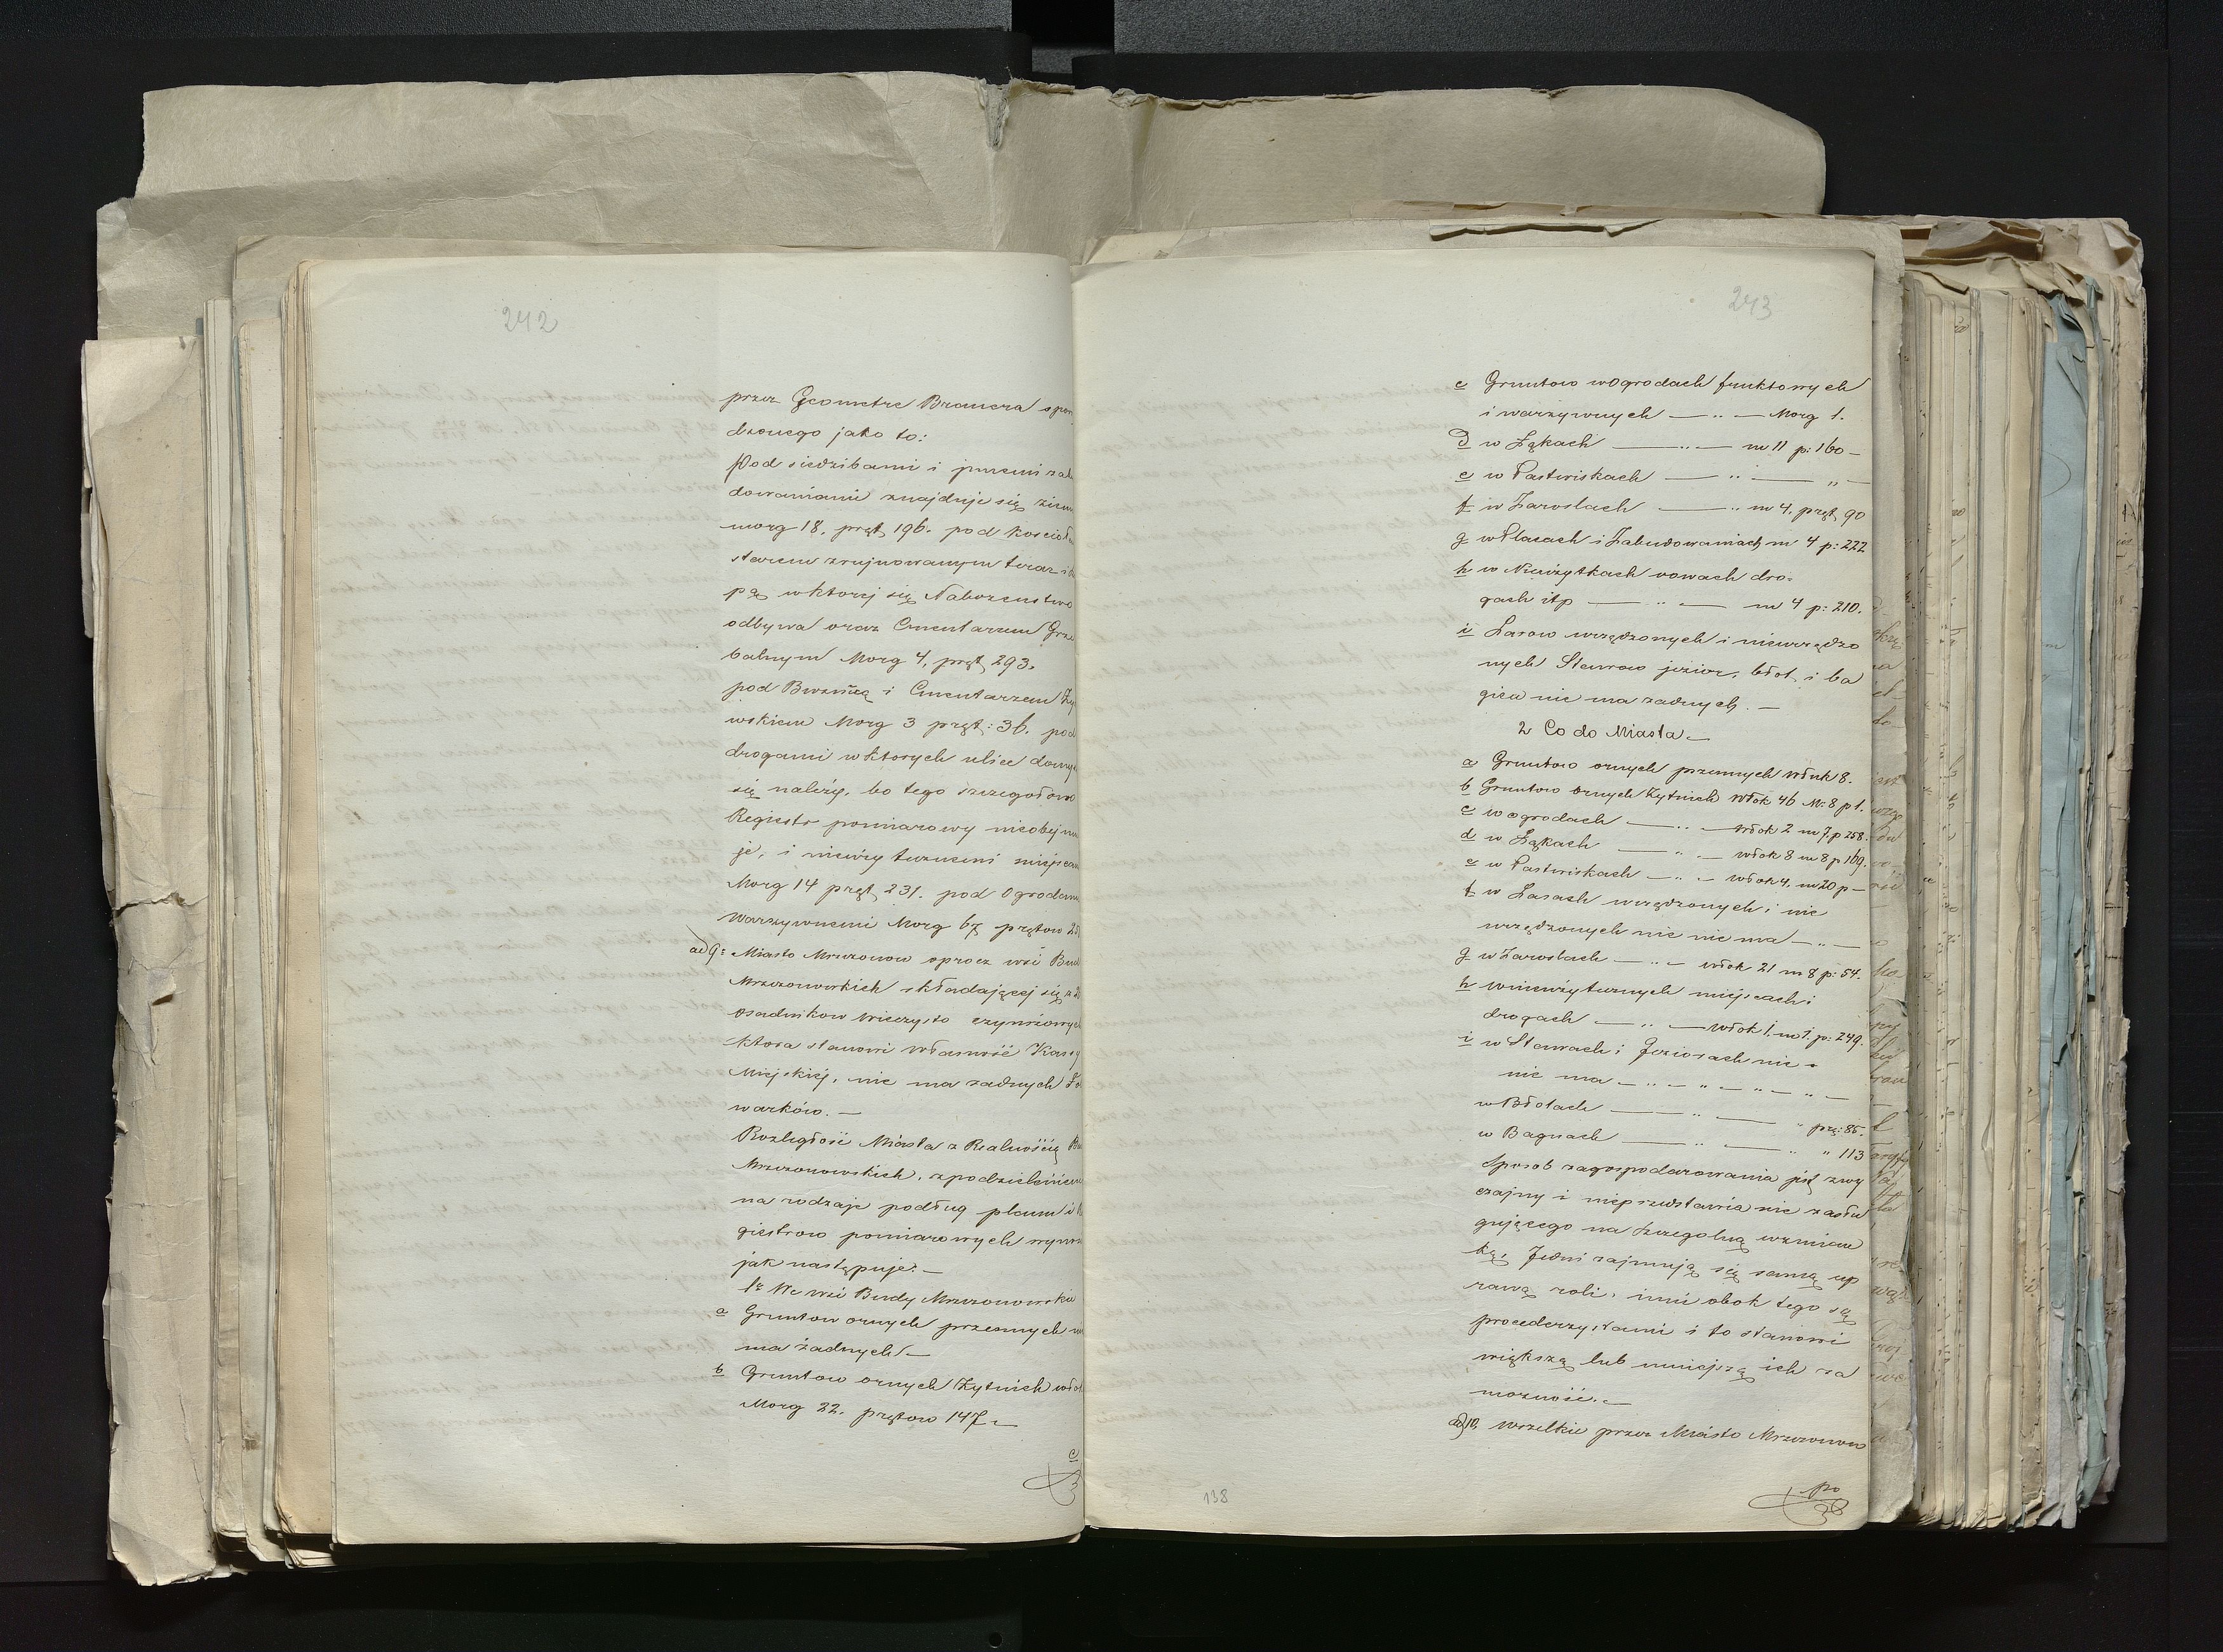 242
przez Geometrę Brauera spor
dzonego jako to:
Pod siedzibami i innemi zabu
dowaniami znajduje się ziemi
morg 18. pręt. 196. pod kosciołem
starem zrujnowanym teraz i
pą wktorej się Nabozenstwo
odbywa oraz Cmentarzem Grze
balnym Morg 4. pręt. 293.
pod Bożnicą i Cmentarzem Ży
wskiem Morg 3 pręt: 36. pod
drogami wktorych ulice domys
się nalezy, bo tego szczegołowo
Regiestr pomiarowy nieobejmu
je, i niewży tecznemi miejscam
Morg 14 pręt. 231. pod Ogrodami
Warzywnemi Morg 67 prętow 25
ad 9: Miasto Mszczonow oprocz wsi Bud
Mszczonowskich składającej się z
osadnikow Wieczysto czynszowych
ktora stanowi własność Kassy
Miejskiej, nie ma zadnych Fo
warków. —
Rozległość Miasta z Realnością Bu
Mszczonowskich, zpodzieleniem
na rodzaje podług planu i R
giestrow pomiarowych wynos
jak następuje. —
1e We wsi Budy Mszczonowskie
a Gruntow ornych przennych nie
ma żadnych. —
b Gruntow ornych Żytnich włok
Morg 22. prętow 147. —
c
243
c Gruntow wogrodach fruktowych
i warzywnych — „ — Morg 1.
d w Łąkach — „ — m 11 p: 160 —
e w Pastwiskach — „ — „ —
f w Zaroslach — „ m 4. pręt. 90
g w Placach i Zabudowaniach m 4 p: 222
h w Nieużytkach rowach dro-
gach itp — „ — m 4 p: 210.
i Lasow urządzonych i nieurządzo
nych Stawow jezior, błot, i ba
gien nie ma zadnych. —
2 Co do Miasta. —
a Gruntow ornych przennych włuk 8.
b Gruntow ornych Żytnich Włok 46 M: 8 p 1.
c w ogrodach — „ — Włok 2 m 7. p 258.
d w Łąkach — „ — włok 8 m 8 p 169.
e w Pastwiskach — „ — włok 4. m 20 p —
f w Lasach urządzonych i nie
urządzonych nic nie ma — „ —
g w Zaroslach — „ — włok 21 m 8 p: 54.
h w niewżytecznych miejscach i
drogach — „ — włok 1. m 1. p: 249.
i w Stawach i Jeziorach nic
nie ma — „ — „ — „ — „ —
w Błotach — „ — „ prę: 85.
w Bagnach — „ — „ „ 113
Sposob zagospodarowania jest zwy
czajny i nieprzedstawia nic zasłu
gującego na szczegolną wzmian
kę. Jedni zajmują się samą up
rawą roli, inni obok tego są
procederzystami i to stanowi
większą lub mniejszą ich za
możność. —
ad 10. Wszelkie przez Miasto Mszczonow
po
138